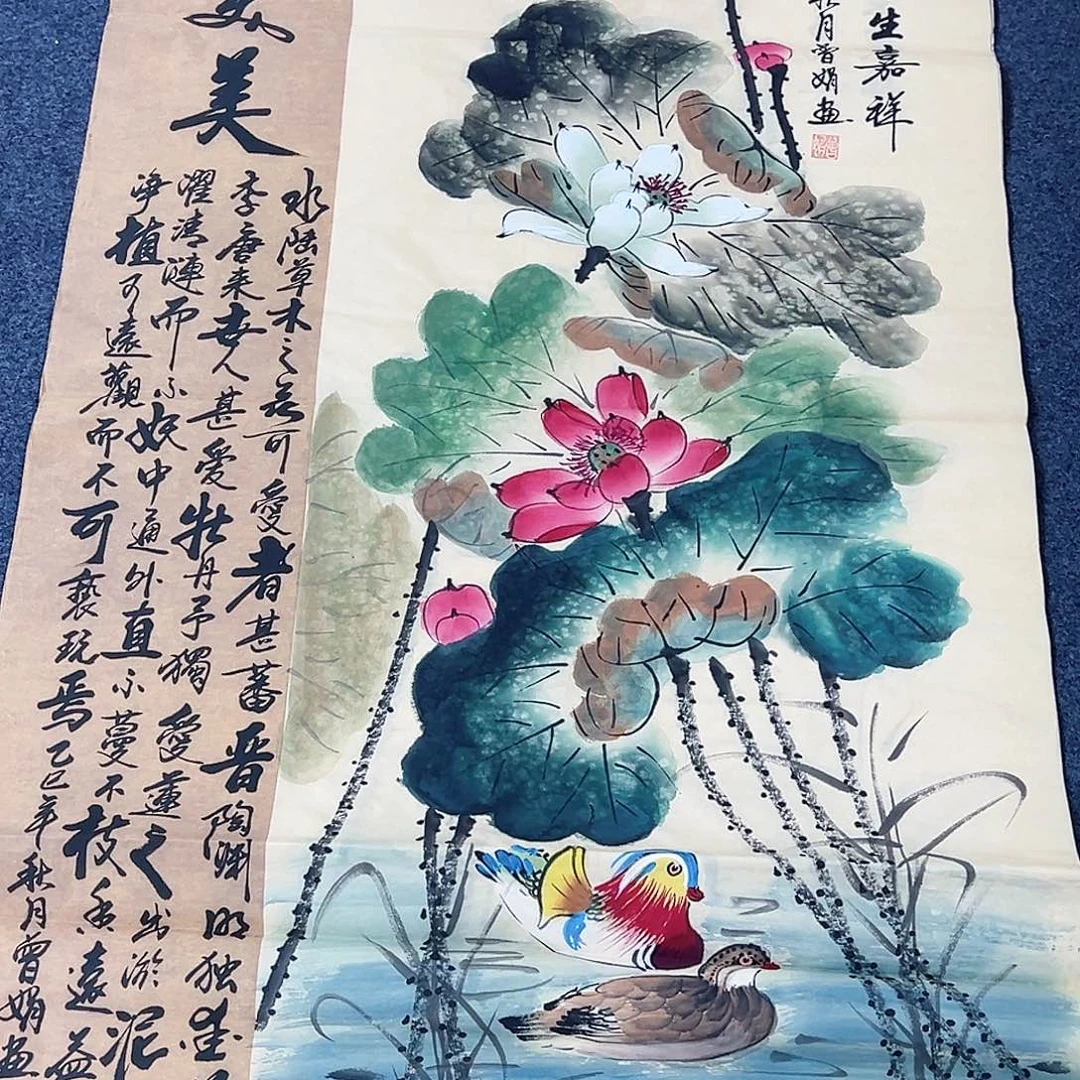 生嘉祥
月曾娟画
美
水陆草木之花可愛者甚蕃晋陶渊明独愛
李唐来世人甚愛牡丹予獨愛蓮之出淤泥
濯清漣而不妖中通外直不蔓不枝香遠益
净植可遠觀而不可褻玩焉乙巳年秋月曾娟画